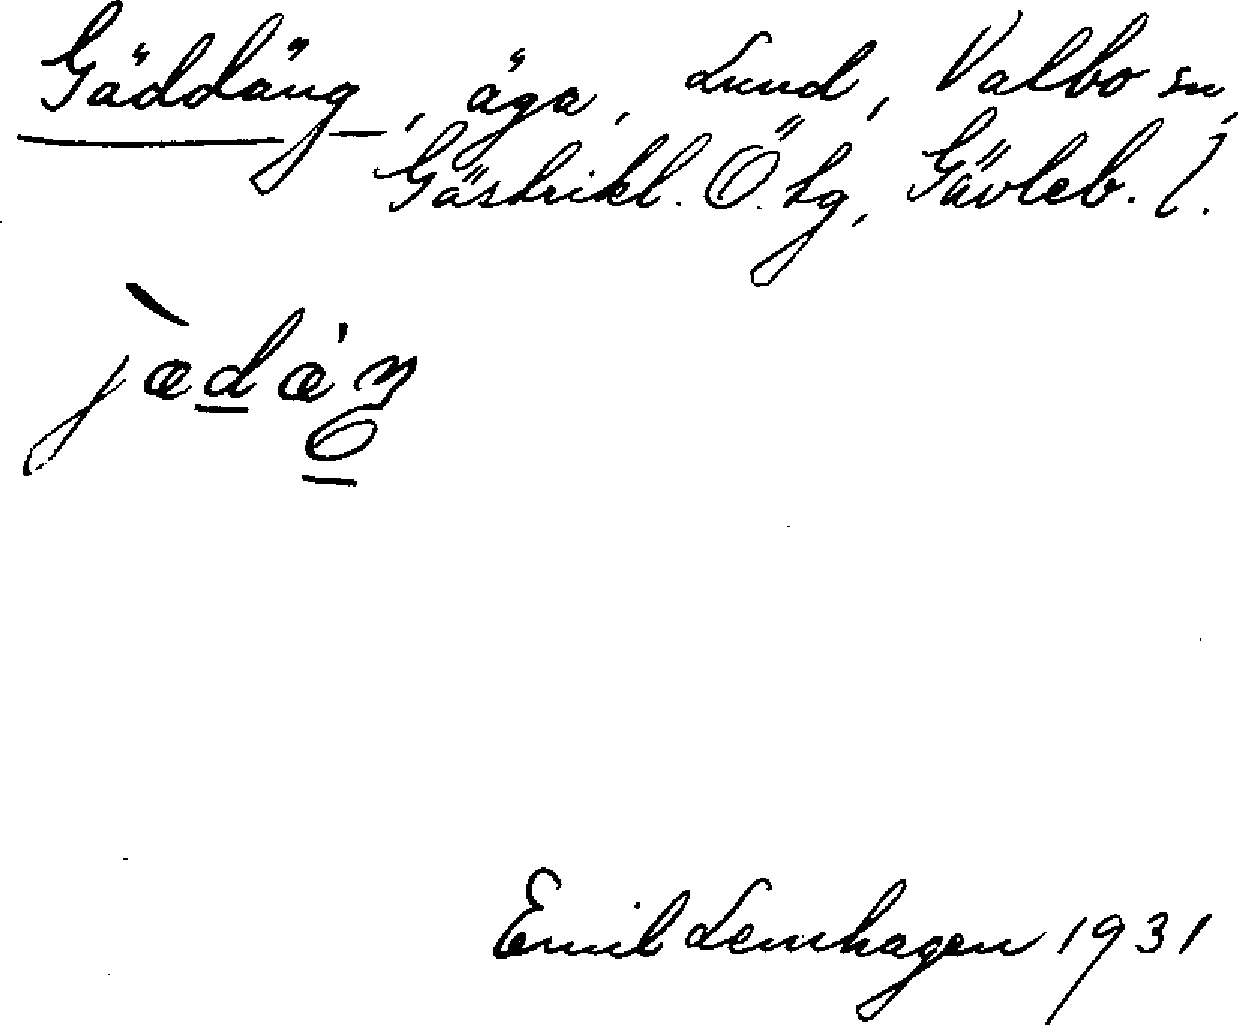 Gäddäng, äga, Lund, Valbo sn,
Gästrikl. Ö. tg, Gävleb. l.
jæ̀dæ̇ŋ
Emil Lemhagen 1931